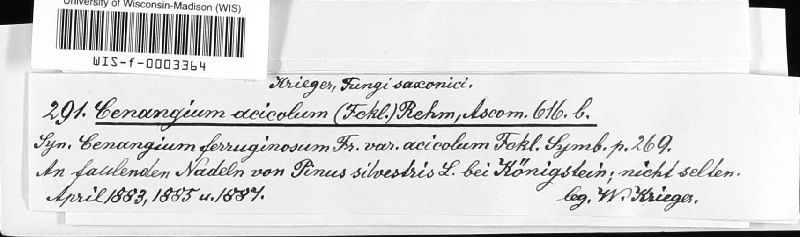 University of Wisconsin-Madison (WIS)
WIS-f-0003364
Krieger, Fungi saxonici.
291. Cenangium acicolum (Fckl.) Rehm, Ascom. 616. b.
Syn. Cenangium ferruginosum Fr. var. acicolum Fckl. Symb. p. 269.
An faulenden Nadeln von Pinus silvestris L. bei Königstein; nicht selten.
April 1883, 1885 u. 1887.
leg. W. Krieger.